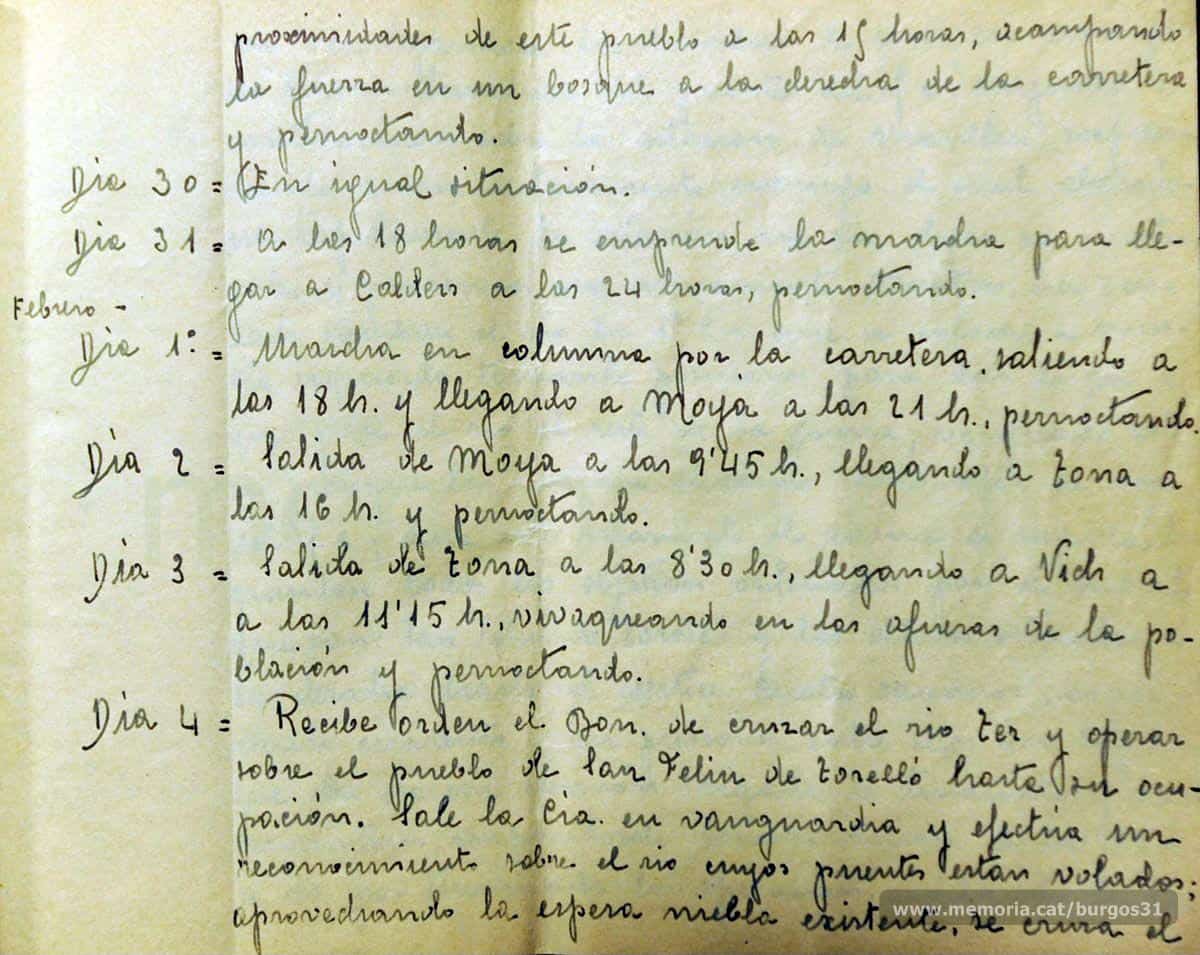 proximidades de este pueblo a las 15 horas, acampando
la fuerza en un bosque a la derecha de la carretera
y pernoctando.
Dia 30 = En igual situación.
Dia 31 = A las 18 horas se emprende la marcha para lle-
gar a Calders a las 24 horas, pernoctando.
Febrero -
Dia 1º = Marcha en columna por la carretera, saliendo a
las 18 h. y llegando a Moyá a las 21 h., pernoctando.
Día 2 = Salida de Moya a las 9'45 h., llegando a Tona a
las 16 h. y pernoctando.
Día 3 = Salida de Tona a las 8'30 h., llegando a Vich a
a las 11'15 h., vivaqueando en las afueras de la po-
blación y pernoctando.
Día 4 = Recibe orden el Bon. de cruzar el rio Ter y operar
sobre el pueblo de San Feliu de Torelló hasta su ocu-
pación. Sale la Cía. en vanguardia y efectúa un
reconocimiento sobre el rio cuyos puentes estan volados;
aprovechando la espesa niebla existente, se cruza el
www.memoria.cat/burgos31